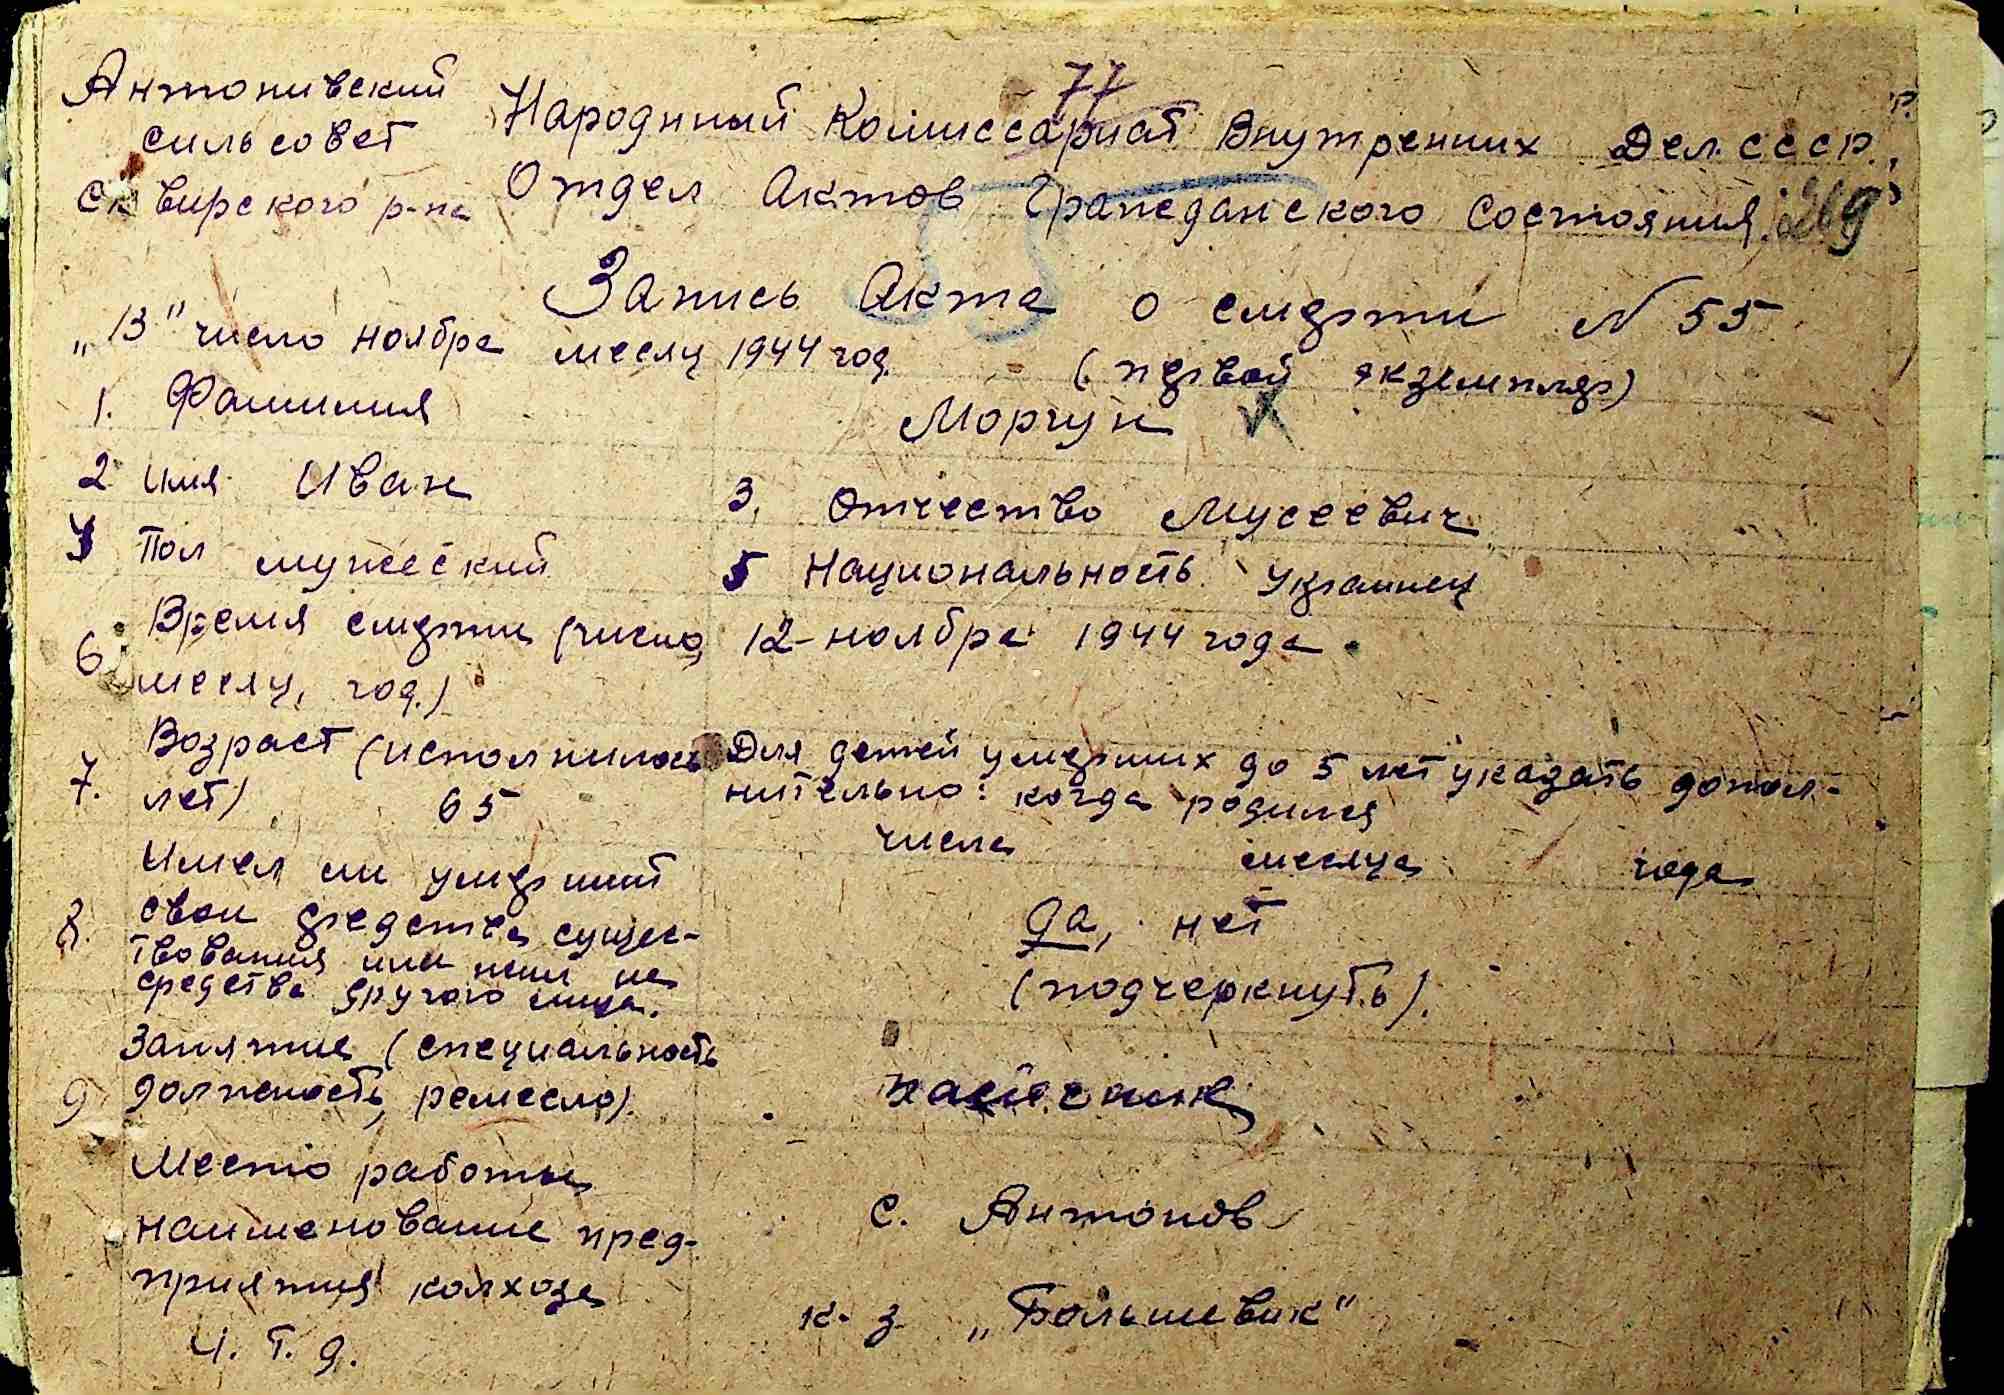 77
Антонивский
сильсовет
Сквирского р-на
Народнный Комиссариат Внутренних Дел СССР.
Отдел Актов Гражданского Состояния.
Запись Акта о смерти N 55
"13" число ноября месяц 1944 год.
(первой экземпляр)
1. Фамилия Моргун
2 Имя Иван 3. Отчество Мусеевич
4 Пол мужеский 5 Национальность Украинец
6. Время смерти (число, месяц, год.) 12-ноября 1944 года
7. Возраст (исполнилось лет) 65
Для детей умерших до 5 лет указать допол-
нительно: когда родился
числа месяца года
8. Имел ли умерший
свои средства сущес-
твования или жил на
средства другого лица.
да, нет
(подчеркнуть).
9 Занятие (специальность
должность, ремесло).
Место работы
наименование пред-
приятия колхоза
и. т. д.
с. Антонов
к-з. „Большевик"